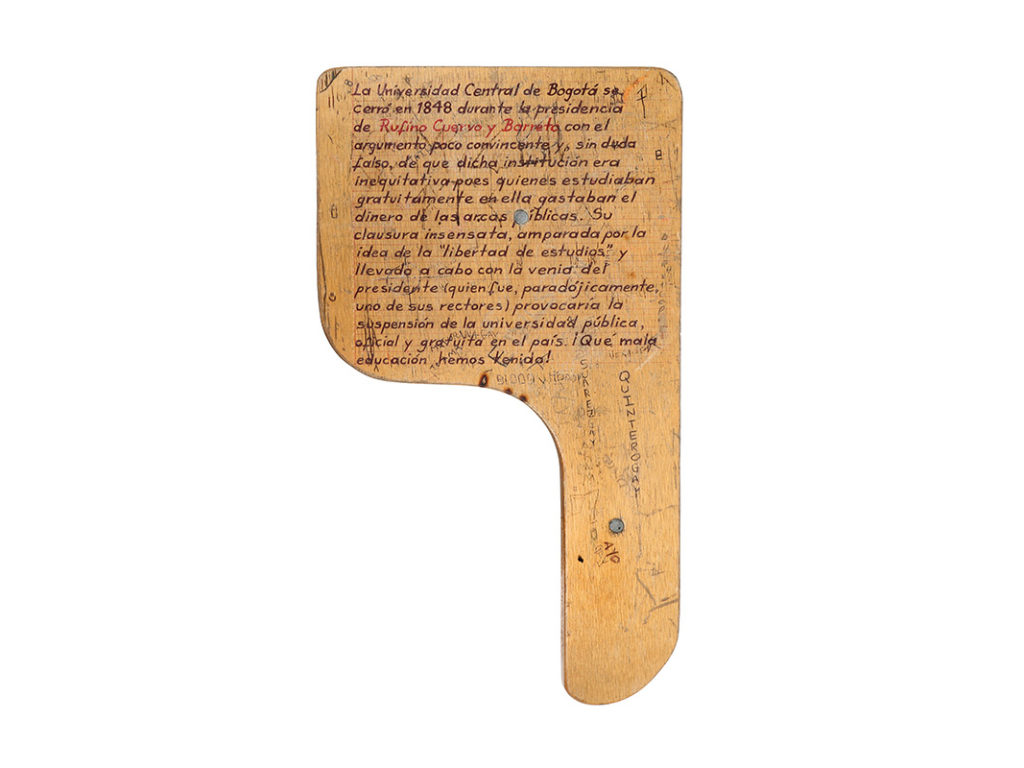 La Universidad Central de Bogotá se
cerró en 1848 durante la presidencia
de Rufino Cuervo y Barreto con el
argumento poco convincente y, sin duda
falso, de que dicha institución era
inequitativa pues quienes estudiaban
gratuitamente en ella gastaban el
dinero de las arcas públicas. Su
clausura insensata, amparada por la
idea de la "libertad de estudios" y
llevada a cabo con la venia del
presidente (quien fue, paradójicamente,
uno de sus rectores) provocaría la
suspensión de la universidad pública,
oficial y gratuita en el país. ¡Qué mala
educación hemos tenido!